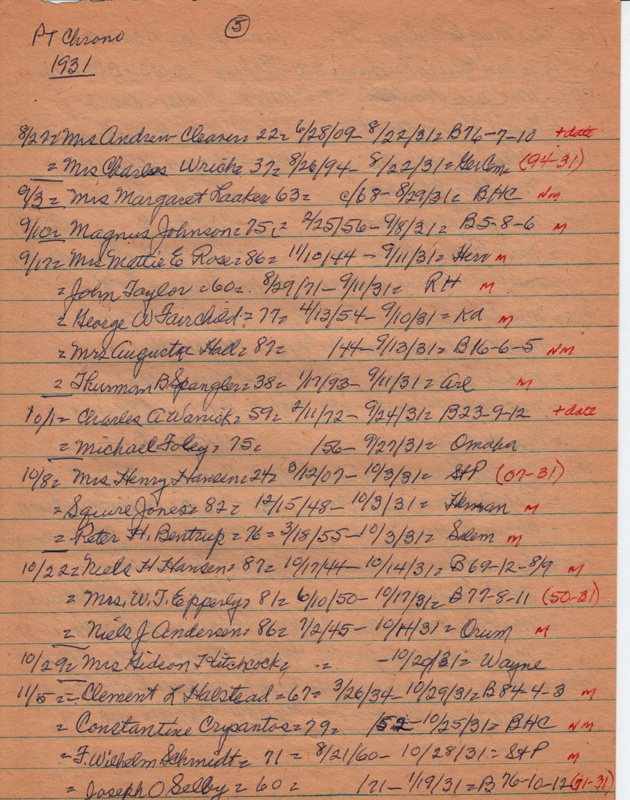 PT Chrono ⑤
1931
8/27= Mrs Andrew Cleaver= 22= 6/28/09- 8/22/31= B76-7-10 +date
= Mrs Charles Wrich= 37= 8/26/94- 8/22/31= GerCem (94-31)
9/3= Mrs Margaret Laaker 63= c/68- 8/29/31= BHC NM
9/10= Magnus Johnson= 75= 2/25/56- 9/8/31= B5-8-6 M
9/17= Mrs Mattie E Rose= 86= 11/10/44- 9/11/31= Herr M
= John Taylor =60= 8/29/71- 9/11/31= RH M
= George W Fairchild= 77= 4/13/54- 9/10/31= Ka M
= Mrs Augusta Hall= 87= /44- 9/13/31= B16-6-5 NM
= Thurman B Spangler= 38= 1/17/93- 9/11/31= Arl M
10/1= Charles A Warrick= 59= 2/11/72- 9/24/31= B23-9-12 +date
= Michael Foley= 75= /56- 9/27/31= Omaha
10/8= Mrs Henry Hansen= 24= 3/12/07- 10/3/31= StP (07-31)
= Squire Jones= 82= 12/15/48- 10/3/31= Herman M
= Peter H. Bentrup =76= 3/18/55- 10/3/31= Salem M
10/22= Niels H Hansen= 87= 10/17/44- 10/14/31= B69-12-8/9 M
= Mrs. W.T. Epperly= 81= 6/10/50- 10/17/31= B77-8-11 (50-31)
= Niels J Anderson= 86= 7/2/45- 10/14/31= Orum M
10/29= Mrs Gideon Hitchcock= = -10/20/31= Wayne
11/5= Clement L Halstead =67= 3/26/34- 10/29/31= B84-4-3 M
= Constantine Crysantos= 79= /52- 10/25/31= BHC NM
= F. Wilhelm Schmidt= 71= 8/21/60- 10/28/31= StP M
= Joseph O Selby= 60= /71- 1/19/31= B 76-10-12 (71-31)